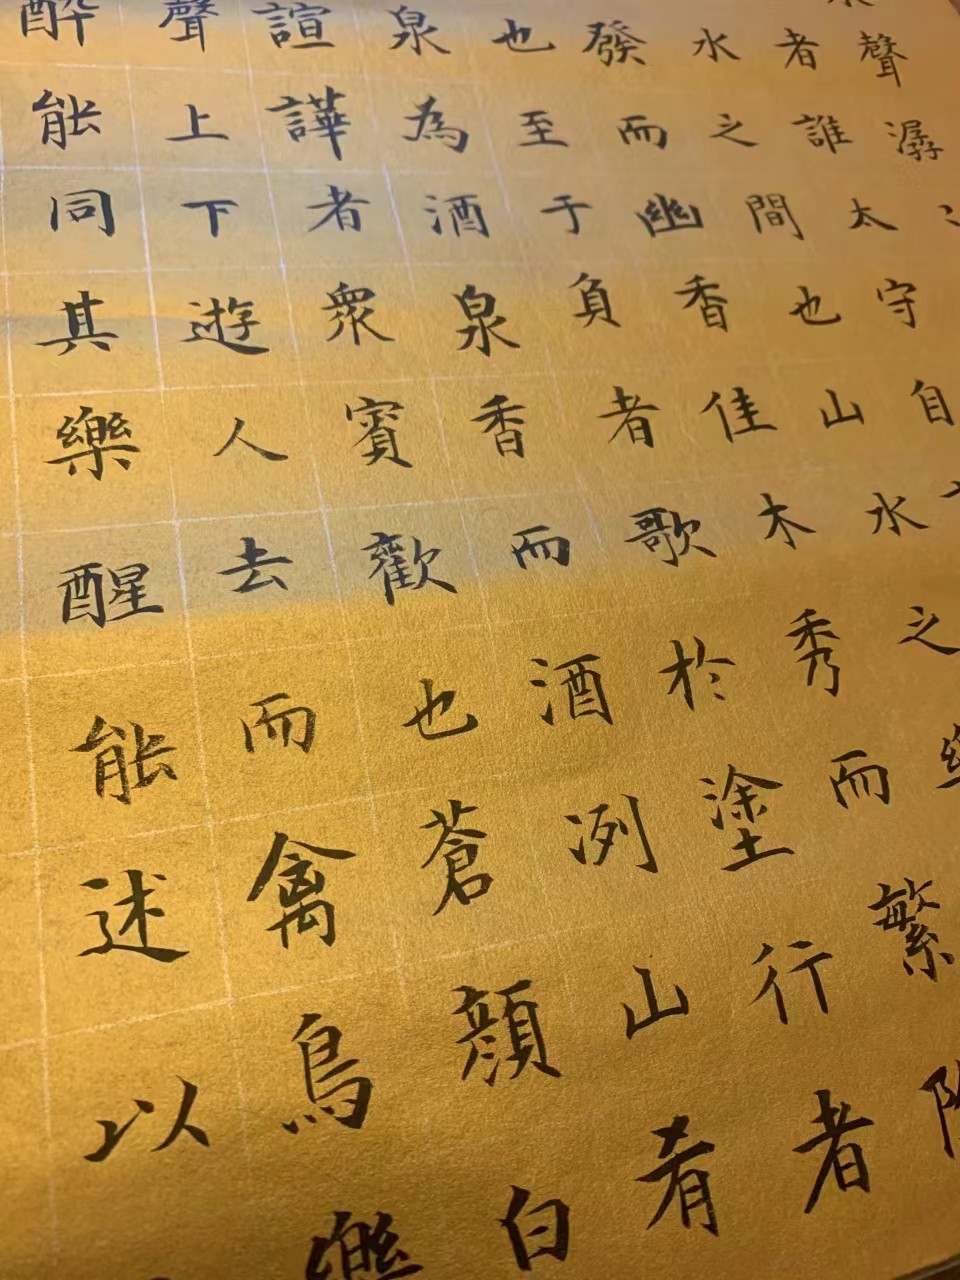 聲潺
者誰太守自
水之間也山水之
發而幽香佳木秀而繁
也至于負者歌於塗行者
泉為酒泉香而酒洌山肴
諠譁者眾賓歡也蒼顏白
聲上下遊人去而禽鳥樂
醉能同其樂醒能述以